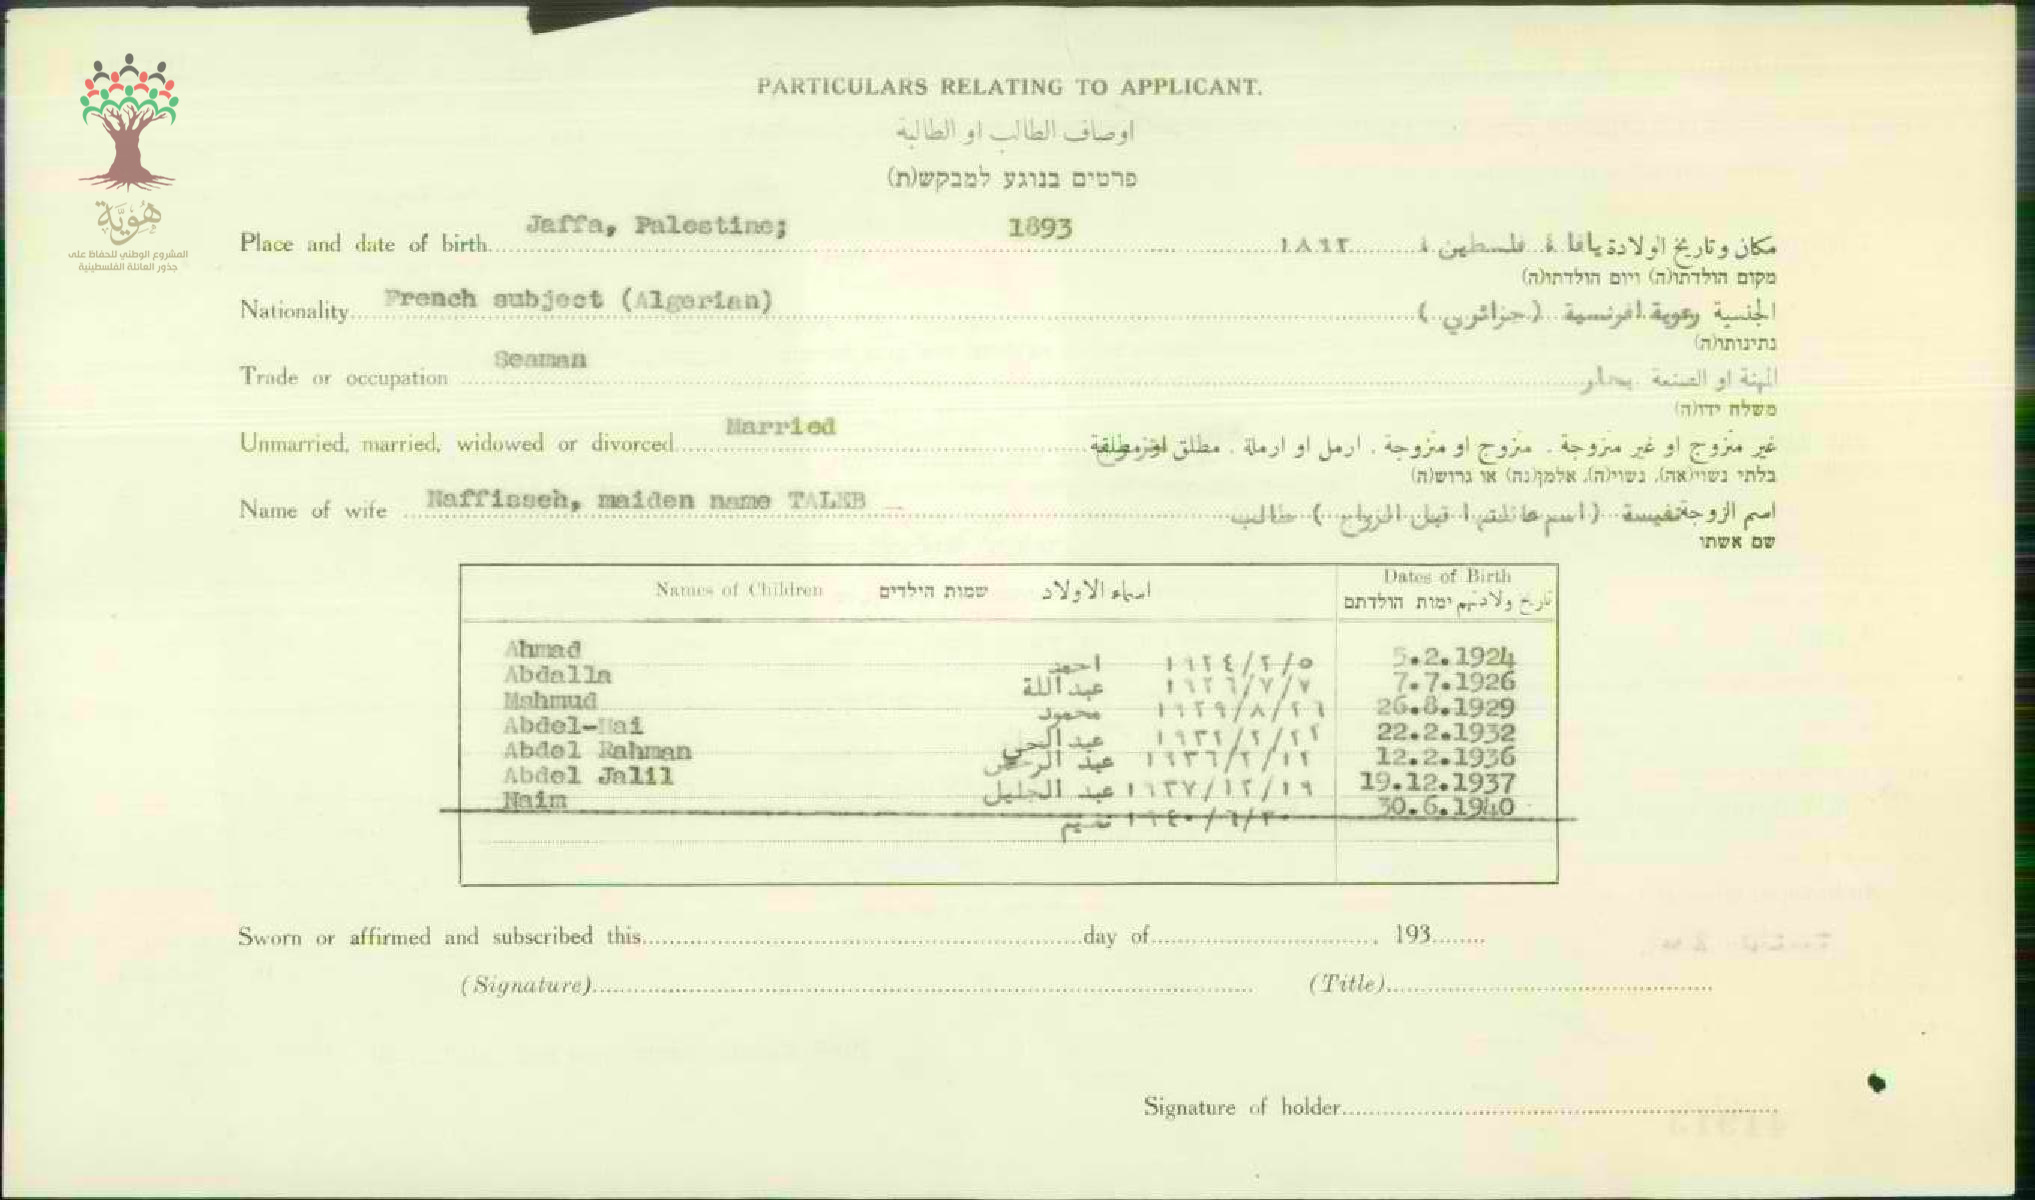 PARTICULARS RELATING TO APPLICANT.
اوصاف الطالب او الطالبة
פרטים בנוגע למבקש(ת)
هُويَّة
المشروع الوطني للحفاظ على
جذور العائلة الفلسطينية
Place and date of birth Jaffa, Palestine; 1893 مكان وتاريخ الولادة يافا ، فلسطين ، ١٨٩٣
מקום הולדתו(ה) ויום הולדתו(ה)
Nationality French subject (Algerian) الجنسية رعوية افرنسية (جزائري)
נתינותו(ה)
Trade or occupation Seaman المهنة او الصنعة بحار
משלח ידו(ה)
Unmarried, married, widowed or divorced Married غير متزوج او غير متزوجة . متزوج او متزوجة . ارمل او ارملة . مطلق او مطلقة
בלתי נשוי(אה), נשוי(ה), אלמן(נה) או גרוש(ה)
Name of wife Naffisseh, maiden name TALEB اسم الزوجة نفيسة (اسم عائلتها قبل الزواج) طالب
שם אשתו
Names of Children שמות הילדים اسماء الاولاد Dates of Birth
تاريخ ولادتهم ימות הולדתם
Ahmad احمد ١٩٢٤/٢/٥ 5.2.1924
Abdalla عبد اللة ١٩٢٦/٧/٧ 7.7.1926
Mahmud محمود ١٩٢٩/٨/٢٦ 26.8.1929
Abdel-Hai عبد الحي ١٩٣٢/٢/٢٢ 22.2.1932
Abdel Rahman عبد الرحمن ١٩٣٦/٢/١٢ 12.2.1936
Abdel Jalil عبد الجليل ١٩٣٧/١٢/١٩ 19.12.1937
Naim نعيم ١٩٤٠/٦/٣٠ 30.6.1940
Sworn or affirmed and subscribed this day of , 193
(Signature) (Title)
Signature of holder